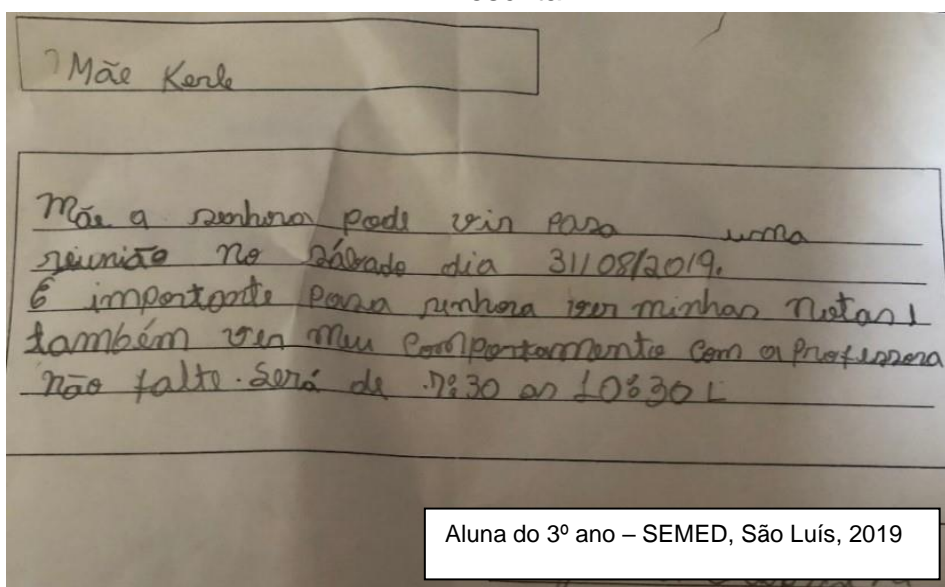 Mãe Kerle
Mãe a senhora pode vin para uma
reunião no sábado dia 31/08/2019.
É importante para senhora ver minhas notas
também ver meu comportamento com a professora
não falte. Será de 7:30 as 10:30
Aluna do 3º ano – SEMED, São Luís, 2019